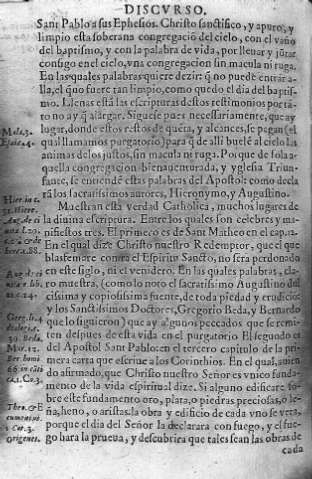 DISCVRSO.
Sant Pablo a sus Ephesios. Christo sanctifico, y apuro, y
limpio esta soberana congregaciō del cielo, con el vaño
del baptismo, y con la palabra de vida, por lleuar y jūtar
consigo en el cielo, vna congregacion sin macula ni ruga.
En las quales palabras quiere dezir q̄ no puede entrar a-
lla, el q̄ no fuere tan limpio, como quedo el dia del baptis-
mo. Llenas estā las escripturas destos testimonios por tā-
to no ay q̄ alargar. Siguese pues necessariamente, que ay
lugar, donde estos restos de quēta, y alcances, se pegan (el
qual llamamos purgatorio) para q̄ de alli buelē al cielo las
animas de los justos, sin macula ni ruga. Porque de sola a-
quella congregacion bienauenturada, y yglesia Triun-
fante, se entiende estas palabras del Apostol: como decla
rā los sacratissimos autores, Hieronymo, y Augustino.
Muestran esta verdad Catholica, muchos lugares de
la diuina escriptura. Entre los quales son celebres y ma-
nifiestos tres. El primero es de Sant Matheo en el cap.12.
En el qual dize Christo nuestro Redemptor, que el que
blasfemare contra el Espiritu Sancto, no sera perdonado
en este siglo, ni el venidero. En las quales palabras, cla-
ro muestra, (como lo noto el sacratissimo Augustino dul
cissima y copiosissima fuente, de toda piedad y erudiciō:
y los Sanctissimos Doctores, Gregorio Beda, y Bernardo
que lo siguieron) que ay algunos peccados que se remi-
ten despues de esta vida en el purgatorio El segundo es
del Apostol Sant Pablo: en el tercero capitulo de la pri-
mera carta que escriue a los Corinthios. En el qual, auien
do afirmado, que Christo nuestro Señor es vnico funda-
mento de la vida espiritual dize. Si alguno edificare so-
bre este fundamento oro, plata, o piedras preciosas, o le-
ña, heno, o aristas. la obra y edificio de cada vno se vera,
porque el dia del Señor la declarara con fuego, y el fue-
go hara la prueua, y descubrira que tales sean las obras de
cada
Hier. in c.
Aug. de ci
Greg. li. 4
30. Beda.
Mar. 12.
Ber. homi
66. in cāti
ca 1. Co. 3.
Theo. & E
1. Cor. 3.
Origenes.